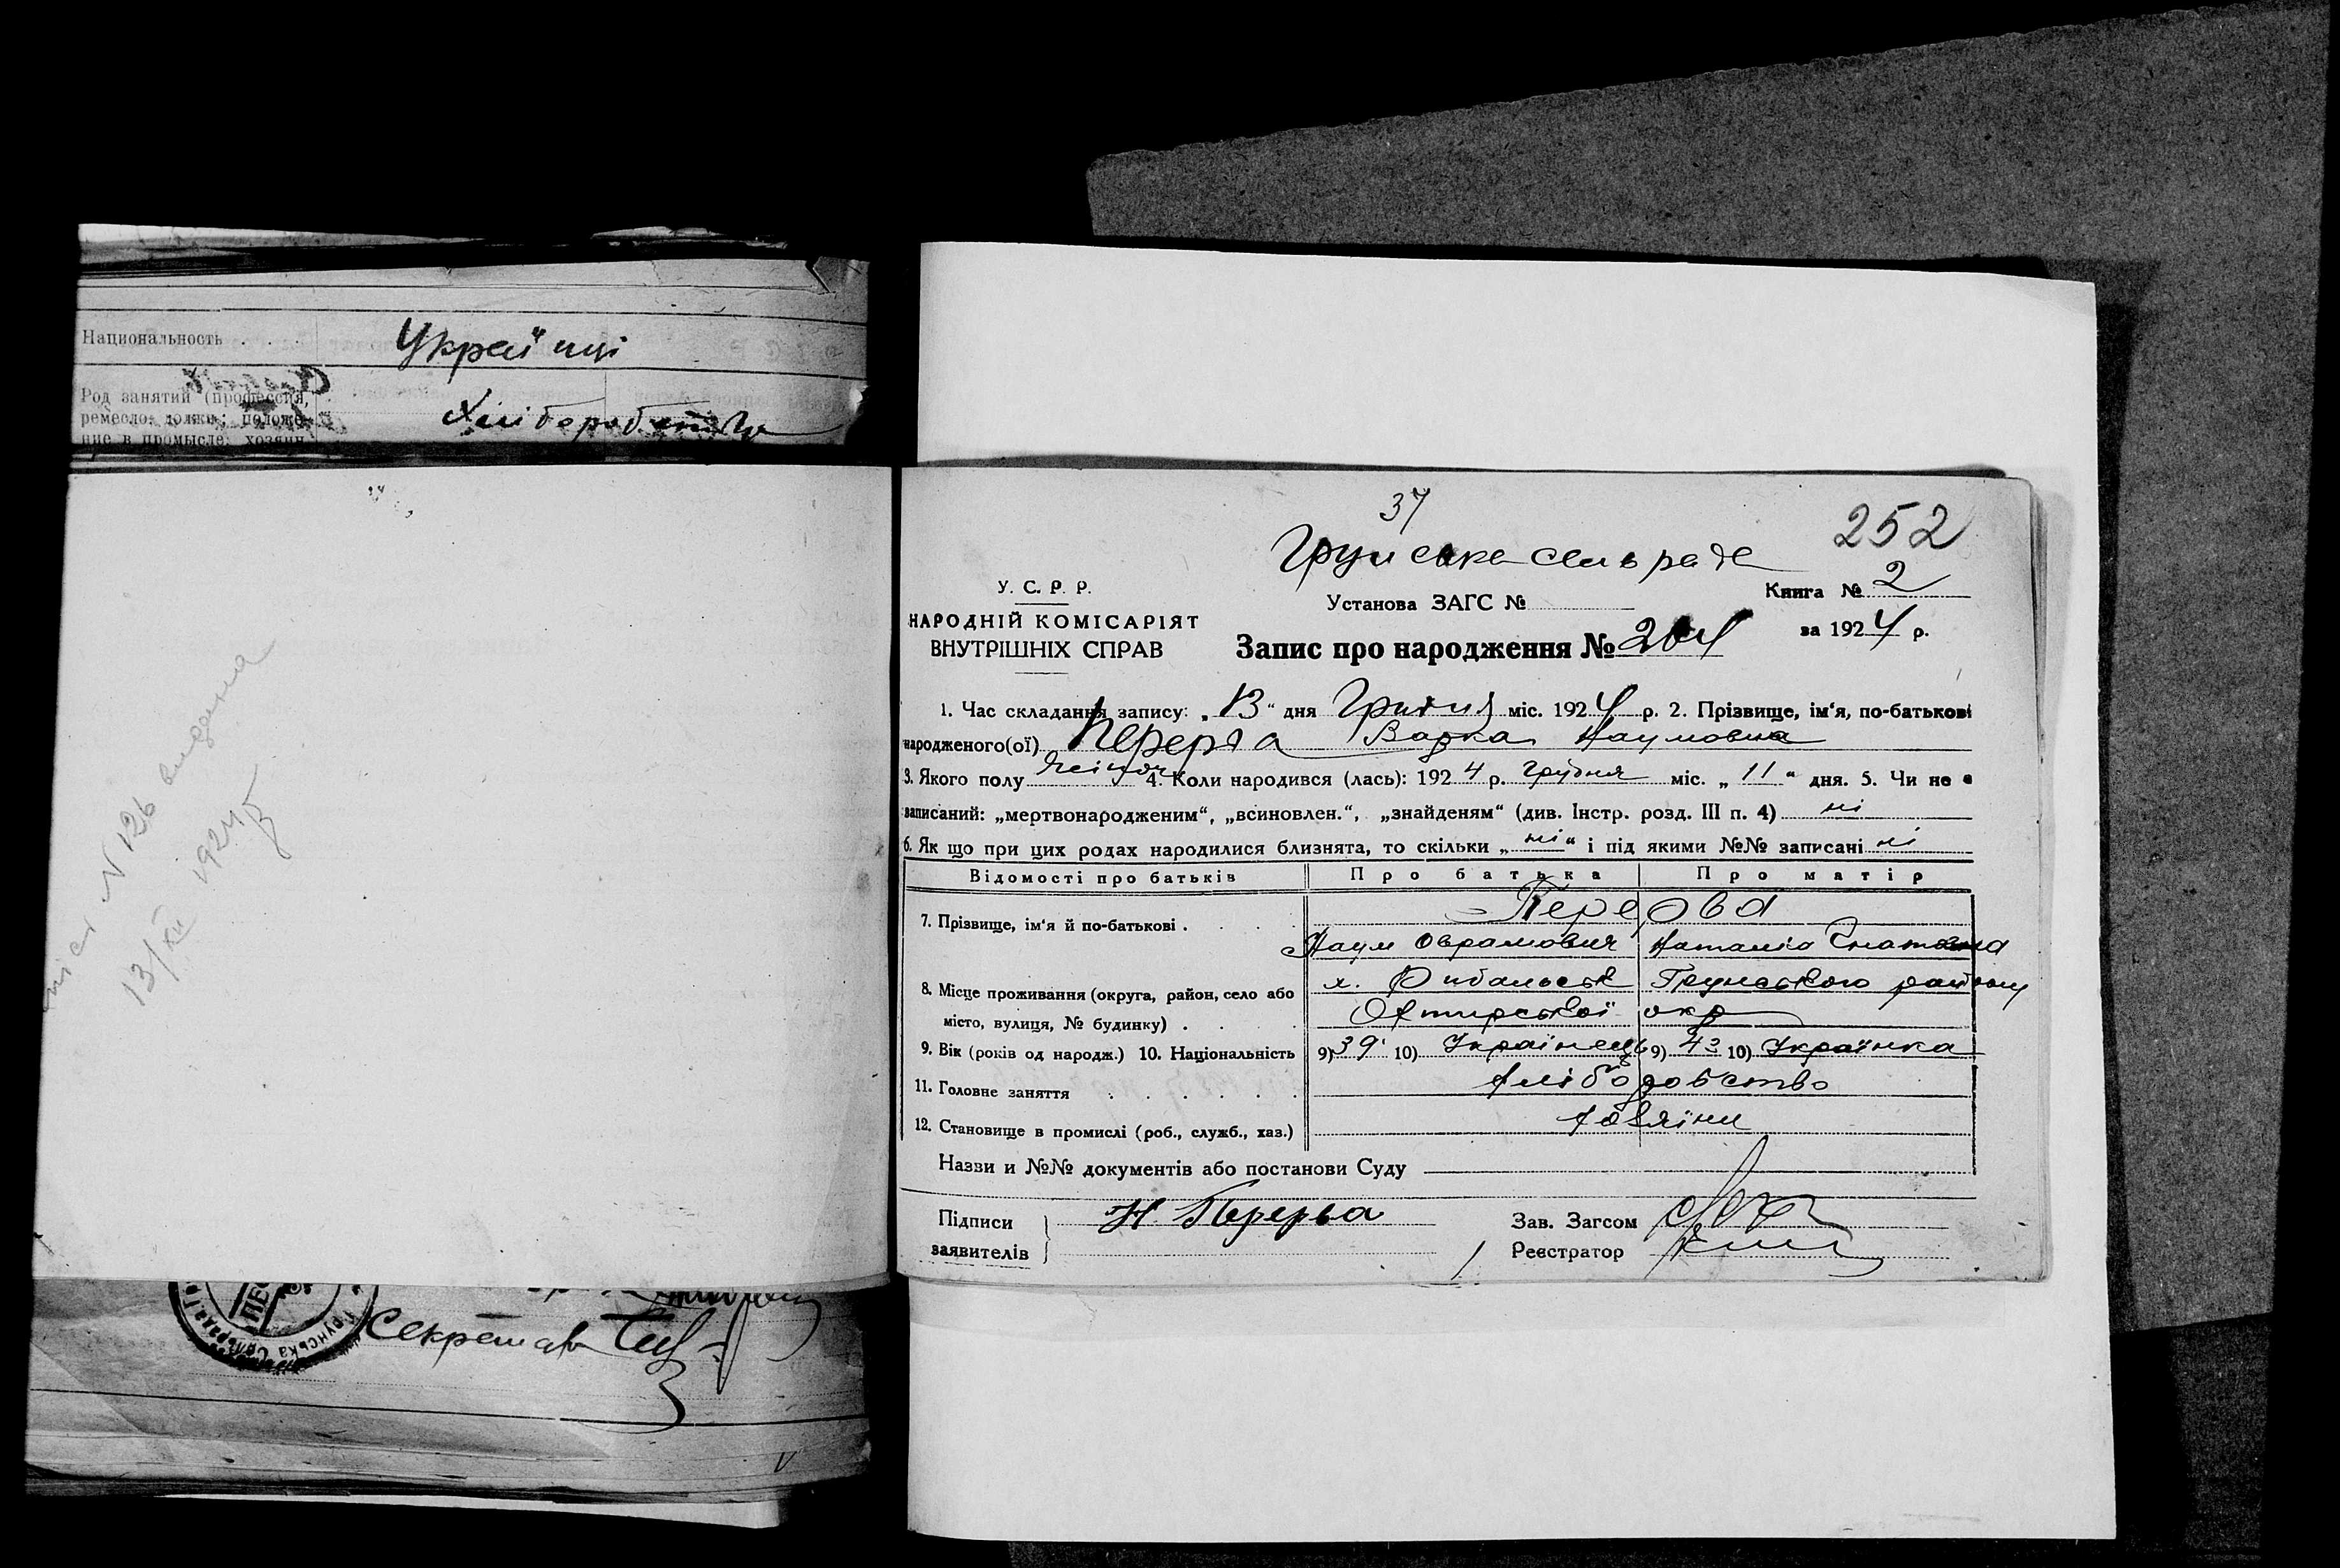 Национальность . . .
Українці
Род занятий (профессия,
ремесло, должн; положе-
ние в промысле: хозяин,
Хлібробство
N 126 видана
13/XII 1924 р
Секретар
Грунська Сільрада
37
252
Грунська сельрада
У. С. Р. Р.
НАРОДНІЙ КОМІСАРІЯТ
ВНУТРІШНІХ СПРАВ
Установа ЗАГС №
Книга № 2
за 1924 р.
Запис про народження №
1. Час складання запису: „13“ дня Грудня міс. 1924 р. 2. Прізвище, ім'я, по-батькові
народженого(ої) Перерва Варка Наумовна
3. Якого полу жіночу 4. Коли народився (лась): 1924 р. Грудня міс. „11“ дня. 5. Чи не є
записаний: „мертвонародженим“, „всиновлен.“, „знайденям“ (див. Інстр. розд. III п. 4) ні
6. Як що при цих родах народилися близнята, то скільки „ні“ і під якими №№ записані ні
Відомості про батьків Про батька Про матір
7. Прізвище, ім'я й по-батькові . Перерва
Наум Оврамович Наталія Гнатовна
8. Місце проживання (округа, район, село або х. Рибальськ Грунського району
місто, вулиця, № будинку) . Охтирської окр
9. Вік (років од народж.) 10. Національність 9) 39 10) Українець 9) 43 10) Українка
11. Головне заняття . . . . . . хліборобство
12. Становище в промислі (роб., служб., хаз.) хазяїни
Назви и №№ документів або постанови Суду
Підписи
заявителів
Н. Перерва
Зав. Загсом
Реєстратор